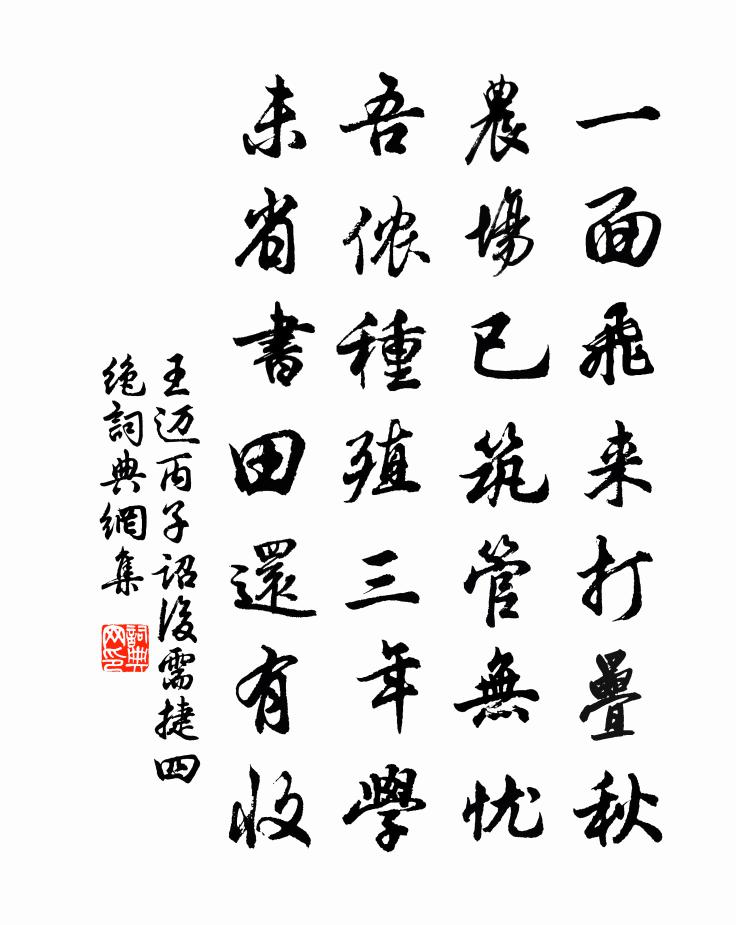 一面飛来打疊秋
農場已筑管無忧
吾侬種殖三年學
未省書田還有收
王迈丙子詔後需捷四
絶詞典網集
詞典網印